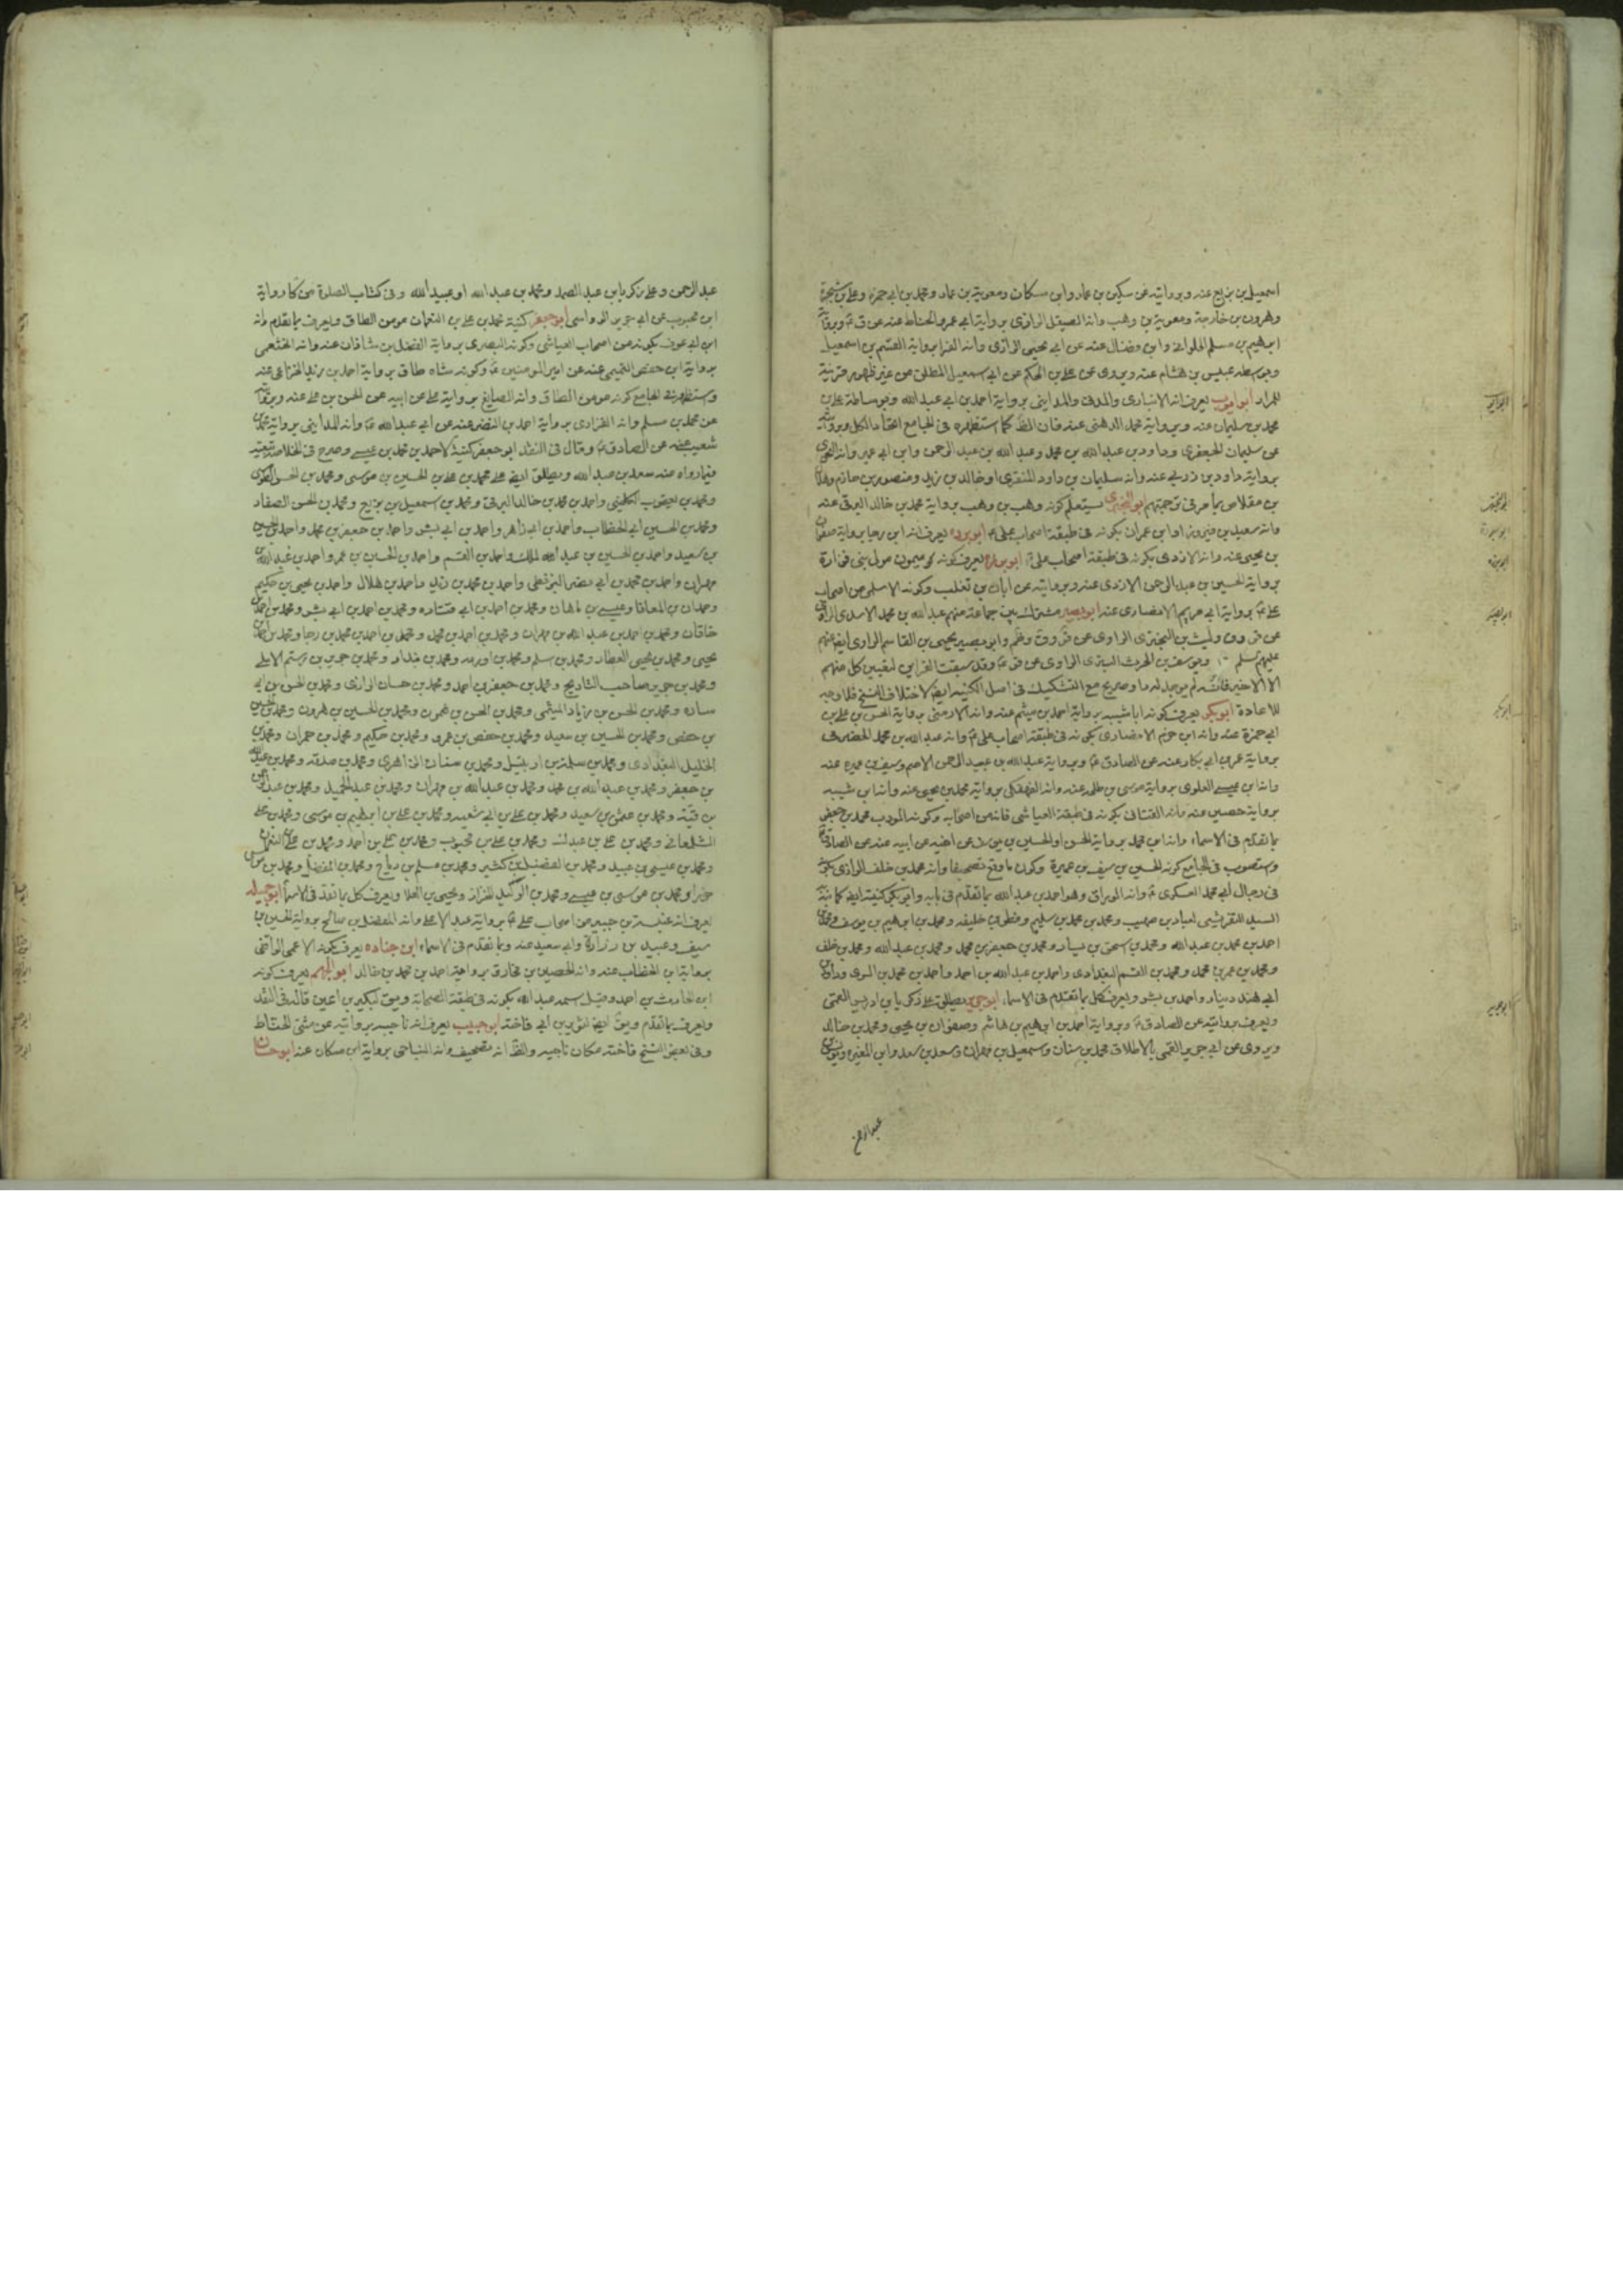 اسمعيل بن بزيع عنه وبروايته عن سكين بن عمار وابن مسكان ومعوية بن عمار ومحمد بن ابي حمزة وعلى بن شجرة
وهرون بن خارجة ومعوية بن وهب وانه الصيقل الرازى برواية ابي عمرو الحناط عنه عن ق ع وبرواية
ابرهيم بن مسلم الحلوانى وابن فضال عنه عن ابي يحيى الرازى وانه الفرا برواية القسم بن اسمعيل
وبوسطه عبيس بن هشام عنه وبروى عن على بن الحكم عن ابي اسمعيل المطلق من غير ظهور قرينة
للمراد ابو ايوب يعرف انه الانبارى والمدنى والمداينى برواية احمد بن ابي عبد الله وبوساطة على بن
محمد بن سليمان عنه وبرواية محمد الدهنى عنه فان الظ كما استظهره فى الجامع اتحاد الكل وبروايته
عن سليمان الجعفرى وداود بن عبد الله بن محمد وعبد الله بن عبد الرحمن وابن ابي عمير وانه النحوى
برواية داود بن زربى عنه وانه سليمان بن داود المنقرى او خالد بن زيد ومنصور بن حازم وهلال
بن مقلاص بما مر فى ترجمتهم ابو البخترى يعلم كونه وهب بن وهب برواية محمد بن خالد البرقى عنه
وانه سعيد بن فيروز او ابن عمران بكونه فى طبقة اصحاب على ع ابو برده يعرف انه ابن رجا برواية صفوان
بن يحيى عنه وانه الازدى بكونه فى طبقة اصحاب على ع يعرف كونه ميمون مولى بنى فزارة
برواية الحسين بن عبد الرحمن الازدى عنه وبروايته عن ابان بن تغلب وكونه الاسلمى من اصحاب
على ع برواية ابي مريم الانصارى عنه ابو بصير مشترك بين جماعة منهم عبد الله بن محمد الاسدى الراوى
عن ق وليث بن البخترى الراوى عن ق وظم وابو بصير يحيى بن القاسم الراوى ايضا عنهم
عليهم سلم ويوسف بن الحرث البترى الراوى عن قر ع وقد سبقت القراين لتعيين كل منهم
الا الاخير فانه لم يوجد له ما وصريح مع التشكيك فى اصل الكنيه ايضا لاختلاف النسخ فلا وجه
للاعادة ابو بكر يعرف كونه ابا شيبه برواية احمد بن ميثم عنه وانه الارمنى برواية الحسن بن على بن
ابي حمزة عنه وانه ابن حزم الانصارى بكونه فى طبقة اصحاب على ع وانه عبد الله بن محمد الحضرمى
برواية عمر بن ابي بكار عنه عن الصادق ع وبرواية عبد الله بن عبد الرحمن الاصم وسيف بن عميره عنه
وانه ابن عيسى العلوى برواية موسى بن طلحه عنه وانه الفهفكى برواية محمد بن يحيى عنه وانه ابن شيبه
برواية حصين عنه وانه القنانى بكونه فى طبقة العياشى فانه من اصحابه وكونه المؤدب محمد بن جعفر
بما تقدم فى الاسماء وانه ابن محمد برواية الحسن او الحسين بن عن اخيه عن ابيه عنه عن الصادق ع
واستصوب فى الجامع كونه الحسين بن سيف بن عميرة وكون ما وقع تصحيفا وانه محمد بن خلف الرازى بكونه
فى رجال ابي محمد العسكرى ع وانه الوراق وهو احمد بن عبد الله بما تقدم فى بابه وابو بكر كنيته ايضا كما نبه
السيد التفريشى لعباد بن صهيب ومحمد بن محمد بن سليم وفطر بن خليفه ومحمد بن ابرهيم بن يوسف ومحمد بن
احمد بن محمد بن عبد الله ومحمد بن اسحق بن يسار ومحمد بن جعفر بن محمد ومحمد بن عبد الله ومحمد بن خلف
ومحمد بن عمر بن محمد ومحمد بن القسم البغدادى واحمد بن عبد الله بن احمد واحمد بن محمد بن السرى وداود بن
ابي هند دينار واحمد بن بشر ويعرف كل بما تقدم فى الاسماء ابو جرير يطلق على زكريا بن ادريس القمى
ويعرف بروايته عن الصادق ع وبرواية احمد بن ابرهيم بن هاشم وصفوان بن يحيى ومحمد بن خالد
ويروى عن ابي جرير القمى بالاطلاق محمد بن سنان واسمعيل بن مهران وسعد بن سعد وابن المغيره ويونس بن
عبد الرحمن
عبد الرحمن وعلى زكريا بن عبد الصمد ومحمد بن عبد الله او عبيد الله وفى كتاب الصلوة من كا رواية
ابن محبوب عن ابي جرير الرواسى ابو جعفر كنية محمد بن على بن النعمان مومن الطاق ويعرف بما تقدم وانه
ابن ابي عوف بكونه من اصحاب العياشى وكونه البصرى برواية الفضل بن شاذان عنه وانه الخثعمى
برواية ابن حفص التميمى عنه عن امير المومنين ع وكونه شاه طاق برواية احمد بن زيد الخزاعى عنه
واستظهر فى الجامع كونه مومن الطاق وانه الصايغ برواية على عن ابيه عن الحسن بن على عنه وبروايته
عن محمد بن مسلم وانه الفزارى برواية احمد بن النضر عنه عن ابي عبد الله ع وانه المداينى برواية محمد بن
شعيب عنه عن الصادق ع وقال فى النقد ابو جعفر كنية لاحمد بن محمد بن عيسى وصرح فى الخلاصة بتعينه
فيما رواه عنه سعد بن عبد الله ويطلق ايضا على محمد بن على بن الحسين بن موسى ومحمد بن الحسن الطوسى
ومحمد بن يعقوب الكلينى واحمد بن محمد بن خالد البرقى ومحمد بن اسمعيل بن بزيع ومحمد بن الحسن الصفار
ومحمد بن الحسين ابي الخطاب واحمد بن ابي زاهر واحمد بن ابي بشر واحمد بن جعفر بن محمد واحمد بن الحسين
بن سعيد واحمد بن الحسين بن عبد الملك واحمد بن القسم واحمد بن الحسين بن عمر واحمد بن عبد الله بن
مهران واحمد بن محمد بن ابي نصر البزنطى واحمد بن محمد بن زيد واحمد بن هلال واحمد بن يحيى بن حكيم
وحمدان بن المعافا وعيسى بن ماهان ومحمد بن احمد بن ابي قتاده ومحمد بن احمد بن ابي بشر ومحمد بن احمد بن
خاقان ومحمد بن احمد بن عبد الله بن مهران ومحمد بن احمد بن محمد ومحمد بن احمد بن محمد بن رجا ومحمد بن احمد بن
يحيى ومحمد بن يحيى العطار ومحمد بن اسلم ومحمد بن اورمه ومحمد بن بندار ومحمد بن جرير بن رستم الاملى
ومحمد بن جرير صاحب التاريخ ومحمد بن جعفر بن احمد ومحمد بن حسان الرازى ومحمد بن الحسن بن ابي
ساره ومحمد بن الحسن بن زياد الميثمى ومحمد بن الحسن بن شمون ومحمد بن الحسين بن هرون ومحمد بن الحسين
بن حفص ومحمد بن الحسين بن سعيد ومحمد بن حفص بن عمرو ومحمد بن حكيم ومحمد بن حمران ومحمد بن
الخليل البغدادى ومحمد بن سلمة بن ارتبيل ومحمد بن سنان الزاهرى ومحمد بن صدقه ومحمد بن عبد الله
بن جعفر ومحمد بن عبد الله بن محمد ومحمد بن عبد الله بن مهران ومحمد بن عبد الحميد ومحمد بن عبد الرحمن
بن قبة ومحمد بن عثمان بن سعيد ومحمد بن على بن ابي شعبه ومحمد بن على بن ابرهيم بن موسى ومحمد بن على
الشلمغانى ومحمد بن على بن عبدك ومحمد بن على بن محبوب ومحمد بن على بن احمد ومحمد بن على بن النعمان
ومحمد بن عيسى بن عبيد ومحمد بن الفضيل بن كثير ومحمد بن مسلم بن رباح ومحمد بن المفضل ومحمد بن موسى
خورا ومحمد بن موسى بن عيسى ومحمد بن الوليد الخزاز ويحيى بن العلا ويعرف كل بما تقدم فى الاسماء ابو جميله
يعرف انه عنبسة بن جبير من اصحاب على ع برواية عبد الاعلى وانه المفضل بن صالح برواية الحسين بن
سيف وعبيد بن زرارة وابي سعيد عنه وبما تقدم فى الاسماء ابن جناده يعرف بكونه الاعمى الواقفى
برواية ابن الخطاب عنه وانه الحصين بن مخارق برواية احمد بن محمد بن خالد ابو الجهم يعرف كونه
ابن الحارث بن احمد وقيل اسمه عبد الله بكونه فى طبقة الصحابة ويق لبكير بن اعين قاله فى النقد
ويعرف بما تقدم ويق ايضا لثوير بن ابي فاخته ابو حبيب يعرف انه ناجيه بروايته عن مثنى الحناط
وفى بعض النسخ فاخته مكان ناجيه والظ انه تصحيف وانه النباجى برواية ابن مسكان عنه ابو حسان